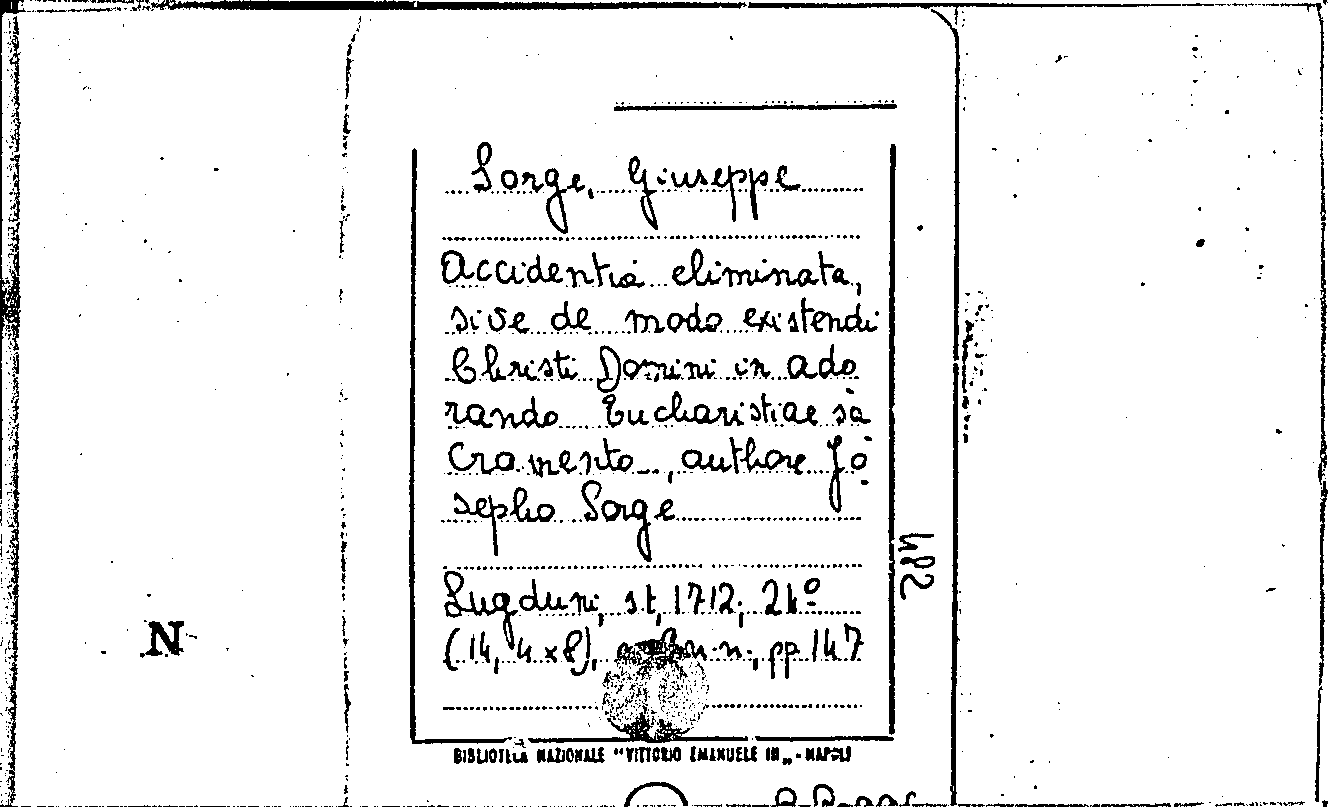 Sorge, Giuseppe
Accidentia eliminata,
sive de modo existendi
Christi Domini in ado
rando Eucharistiae sa
cramento, authore Jo
sepho Sorge
482
Lugduni, s.t, 1712; 24º
(14, 4 x 8), n.n., pp 147
N
BIBLIOTECA NAZIONALE "VITTORIO EMANUELE III„ - NAPOLI